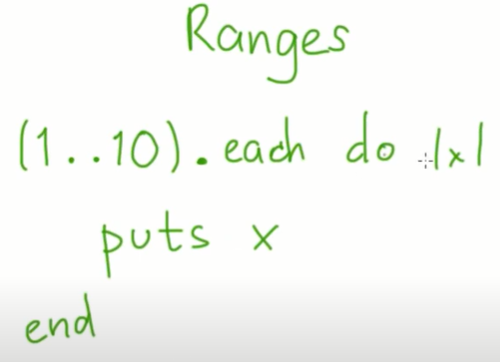 Ranges
(1..10).each do |x|
puts x
end